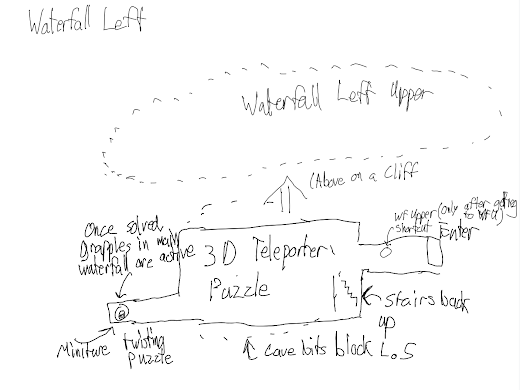 Waterfall Left
Waterfall Left Upper
(Above on a Cliff
WF Upper (only after getting
shortcut to WFU)
Enter
Once solved
Drapples in main
waterfall are active
3D Teleporter
Puzzle
Stairs back
up
Miniture twisting
Puzzle
Cave bits block L.O.S